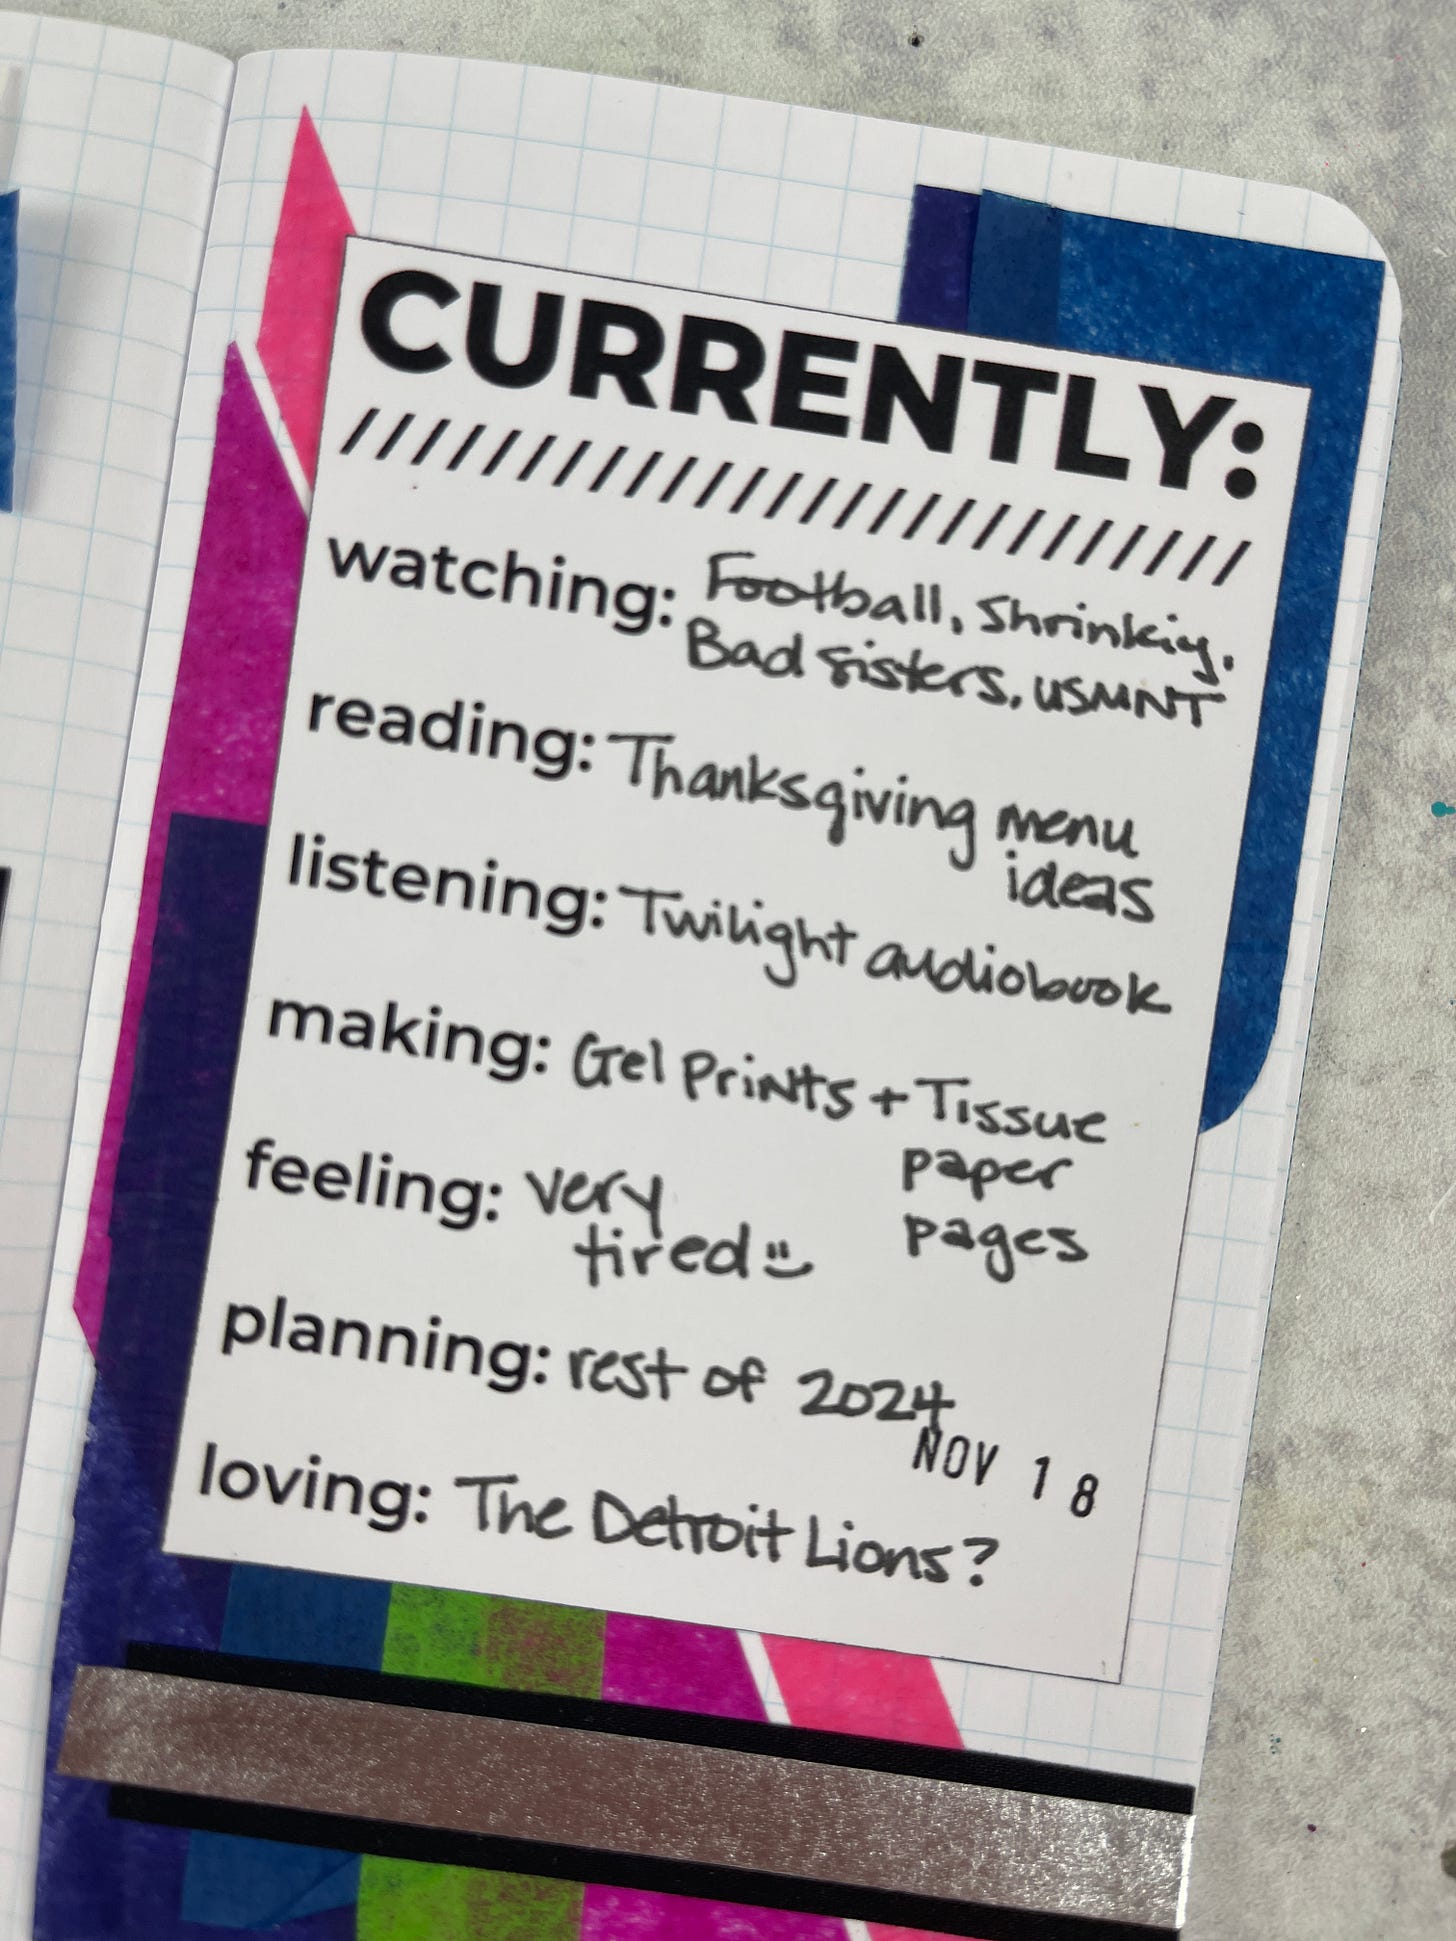 CURRENTLY:
////////////////////////////////////////
watching: Football, Shrinking,
Bad Sisters, USMNT
reading: Thanksgiving menu
ideas
listening: Twilight audiobook
making: Gel Prints + Tissue
paper
pages
feeling: very
tired
planning: rest of 2024
NOV 18
loving: The Detroit Lions?